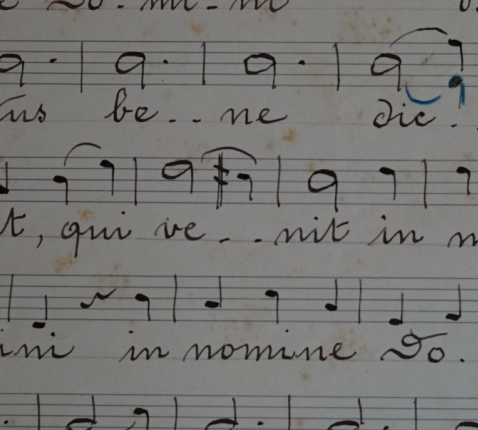 Do. mi. ni
us be.. ne dic.
t, qui ve... nit in n
ini in nomine Do.